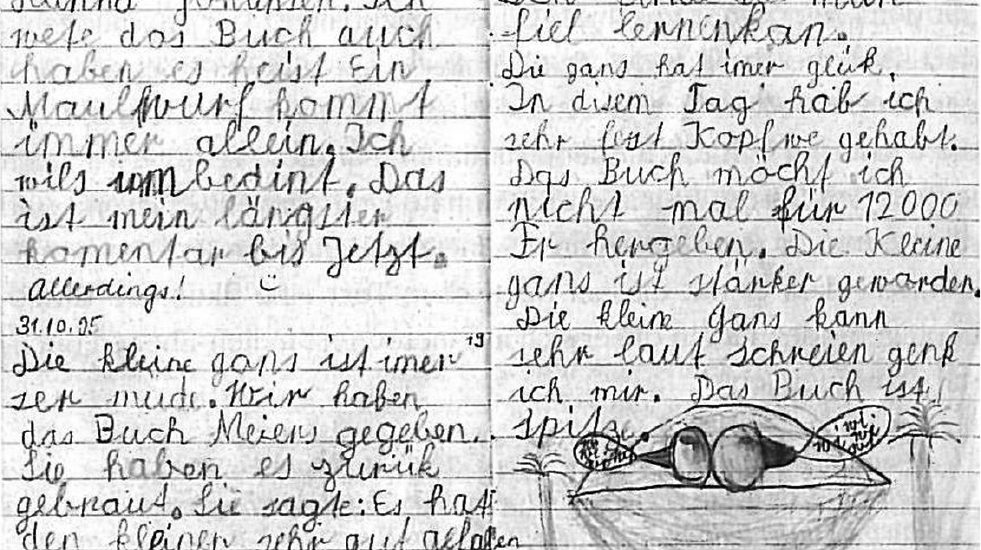 wete das Buch auch
haben es heist Ein
Maulwurf kommt
immer allein. Ich
wils umbedint. Das
ist mein längster
komentar bis Jetzt.
Allerdings!
31.10.95
19
Die kleine gans ist imer
ser mude. Wir haben
das Buch Meiers gegeben.
Sie haben es zurük
gebraut. Sie sagte: Es hat
den kleinen sehr gut gefallen
fiel lernenkan.
Die gans hat imer glük.
In disem Tag hab ich
sehr fest Kopfwe gehabt.
Das Buch möcht ich
nicht mal für 12000
Fr hergeben. Die Kleine
gans ist stärker gewarden.
Die kleine Gans kann
sehr laut schreien genk
ich mir. Das Buch ist
spitze.